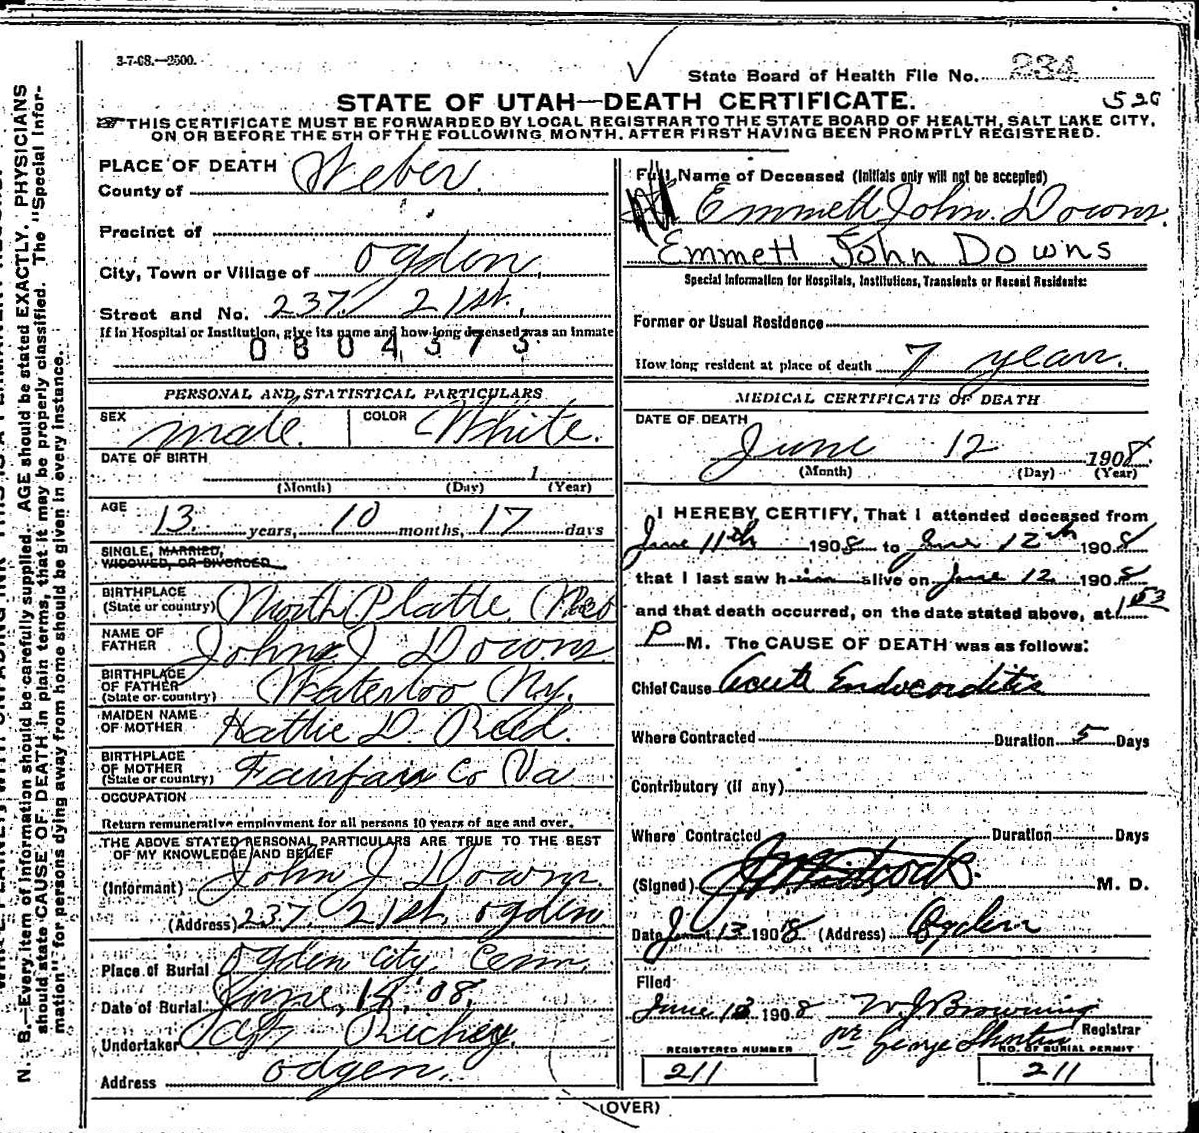 3-7-08.—2500.
State Board of Health File No. 234
STATE OF UTAH—DEATH CERTIFICATE.
520
THIS CERTIFICATE MUST BE FORWARDED BY LOCAL REGISTRAR TO THE STATE BOARD OF HEALTH, SALT LAKE CITY,
ON OR BEFORE THE 5TH OF THE FOLLOWING MONTH, AFTER FIRST HAVING BEEN PROMPTLY REGISTERED.
PLACE OF DEATH
County of Weber
Precinct of
City, Town or Village of Ogden
Street and No. 237 21st.
If in Hospital or Institution, give its name and how long deceased was an inmate
0804373
PERSONAL AND STATISTICAL PARTICULARS
SEX male. COLOR White.
DATE OF BIRTH
1
(Month) (Day) (Year)
AGE 13 years, 10 months, 17 days
SINGLE, MARRIED,
WIDOWED, OR DIVORCED
BIRTHPLACE
(State or country) North Platte Neb
NAME OF
FATHER John J Downs
BIRTHPLACE
OF FATHER
(State or country) Waterloo Ny.
MAIDEN NAME
OF MOTHER Hattie D. Reed.
BIRTHPLACE
OF MOTHER
(State or country) Fairfax Co Va
OCCUPATION
Return remunerative employment for all persons 10 years of age and over.
THE ABOVE STATED PERSONAL PARTICULARS ARE TRUE TO THE BEST
OF MY KNOWLEDGE AND BELIEF
(Informant) John J Downs.
(Address) 237. 21st. Ogden
Place of Burial Ogden City Cem.
Date of Burial June, 14, '08.
Undertaker Richey.
Address Odgen.
Full Name of Deceased (Initials only will not be accepted)
Emmett John Downs
Emmett John Downs
Special Information for Hospitals, Institutions, Transients or Recent Residents:
Former or Usual Residence
How long resident at place of death 7 years.
MEDICAL CERTIFICATE OF DEATH
DATE OF DEATH
June 12 1908
(Month) (Day) (Year)
I HEREBY CERTIFY, That I attended deceased from
June 11th 1908 to June 12th 1908
that I last saw him alive on June 12 1908
and that death occurred, on the date stated above, at 1
P M. The CAUSE OF DEATH was as follows:
Chief Cause Acute Endocarditis
Where Contracted Duration 5 Days
Contributory (if any)
Where Contracted Duration Days
(Signed) M. D.
Date 13 1908 (Address) Ogden
Filed
June 13 1908 W J Browning
Registrar
pr George Shorten
REGISTERED NUMBER
211
NO. OF BURIAL PERMIT
211
(OVER)
N. B.—Every item of information should be carefully supplied. AGE should be stated EXACTLY. PHYSICIANS
should state CAUSE OF DEATH in plain terms, that it may be properly classified. The "Special Infor-
mation" for persons dying away from home should be given in every instance.